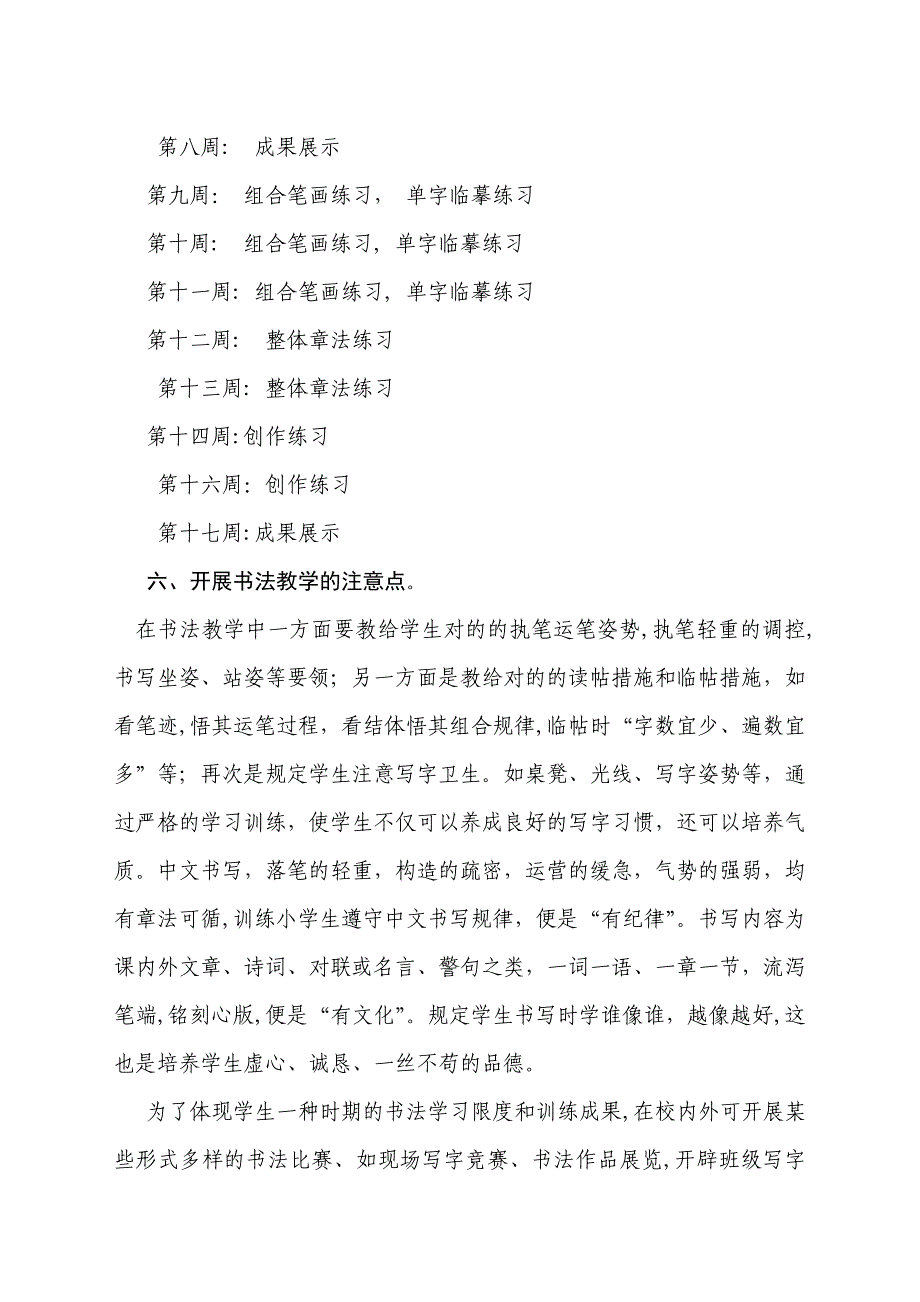 第八周： 成果展示
第九周： 组合笔画练习， 单字临摹练习
第十周： 组合笔画练习, 单字临摹练习
第十一周: 组合笔画练习, 单字临摹练习
第十二周： 整体章法练习
第十三周: 整体章法练习
第十四周:创作练习
第十六周: 创作练习
第十七周:成果展示
六、开展书法教学的注意点。
在书法教学中一方面要教给学生对的的执笔运笔姿势,执笔轻重的调控,
书写坐姿、站姿等要领；另一方面是教给对的的读帖措施和临帖措施，如
看笔迹,悟其运笔过程，看结体悟其组合规律,临帖时“字数宜少、遍数宜
多”等；再次是规定学生注意写字卫生。如桌凳、光线、写字姿势等，通
过严格的学习训练，使学生不仅可以养成良好的写字习惯，还可以培养气
质。中文书写，落笔的轻重，构造的疏密，运营的缓急，气势的强弱，均
有章法可循,训练小学生遵守中文书写规律，便是“有纪律”。书写内容为
课内外文章、诗词、对联或名言、警句之类，一词一语、一章一节，流泻
笔端,铭刻心版,便是“有文化”。规定学生书写时学谁像谁，越像越好,这
也是培养学生虚心、诚恳、一丝不苟的品德。
为了体现学生一种时期的书法学习限度和训练成果,在校内外可开展某
些形式多样的书法比赛、如现场写字竞赛、书法作品展览,开辟班级写字